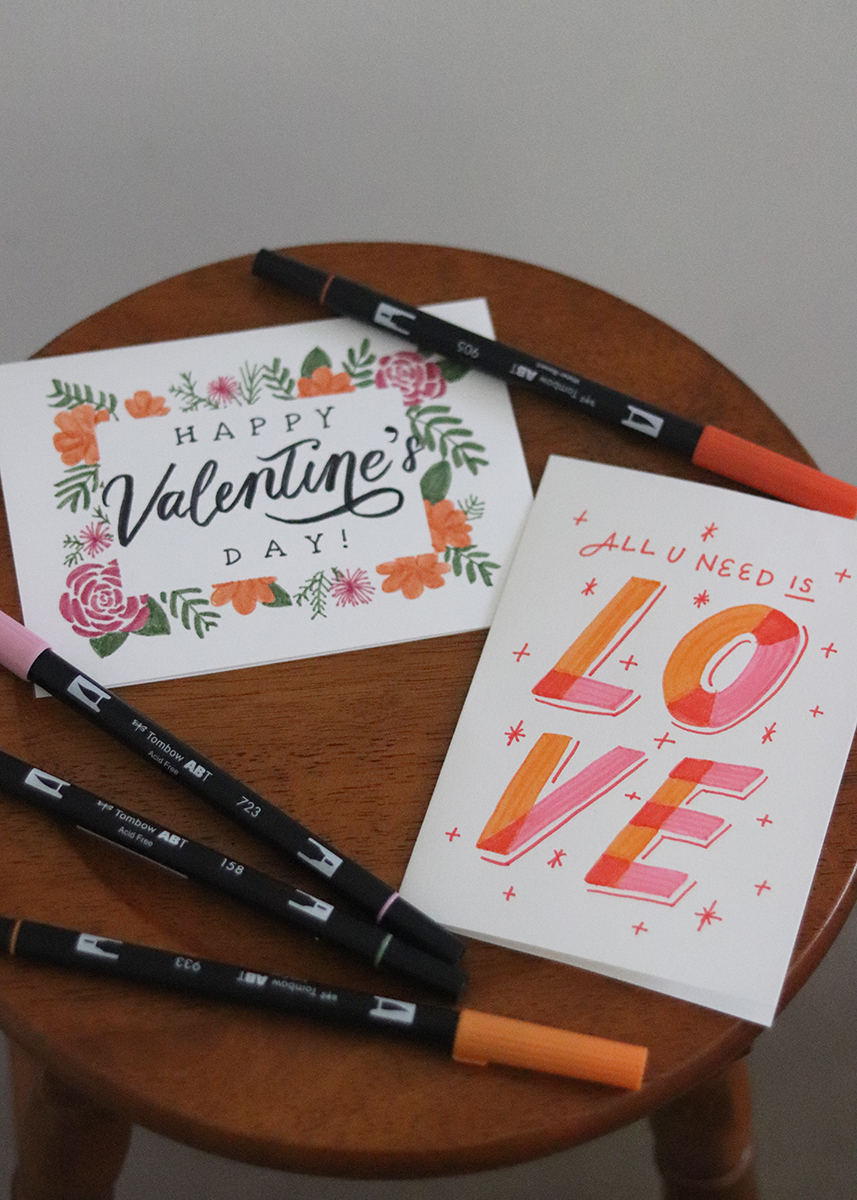 HAPPY
Valentine's
DAY!
ALL U NEED IS
LO
VE
905
Tombow ABT
Tombow ABT
Acid Free
723
Tombow ABT
Acid Free
158
933
Tombow ABT